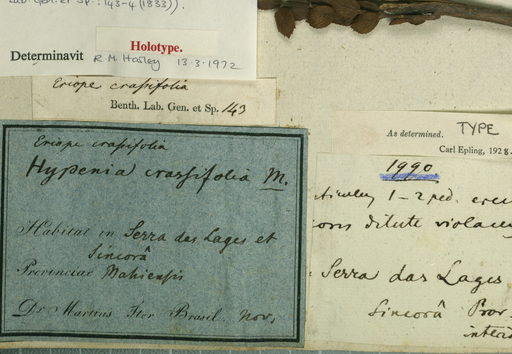 Lab. Gen. et Sp.: 143-4 (1833)).
Holotype.
Determinavit R M Harley 13·3·1972
Eriope crassifolia
Benth. Lab. Gen. et Sp. 143
Eriope crassifolia
Hypenia crassifolia M.
Habitat in Serra das Lages et
Sincorâ
Provinciae Bahiensis
Dr Martius Iter Brasil. Nov.
As determined. TYPE
Carl Epling, 1928.
1990
1-2 ped. erec
dilute violacey
Serra das Lages
Sincorâ Prov.